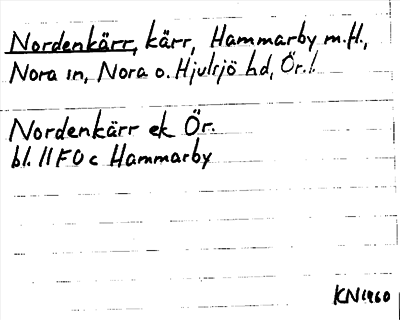 Nordenkärr, kärr, Hammarby m.fl.,
Nora sn, Nora o. Hjulsjö hd, Ör. l.
Nordenkärr ek Ör.
bl. 11F0c Hammarby
KN 1960